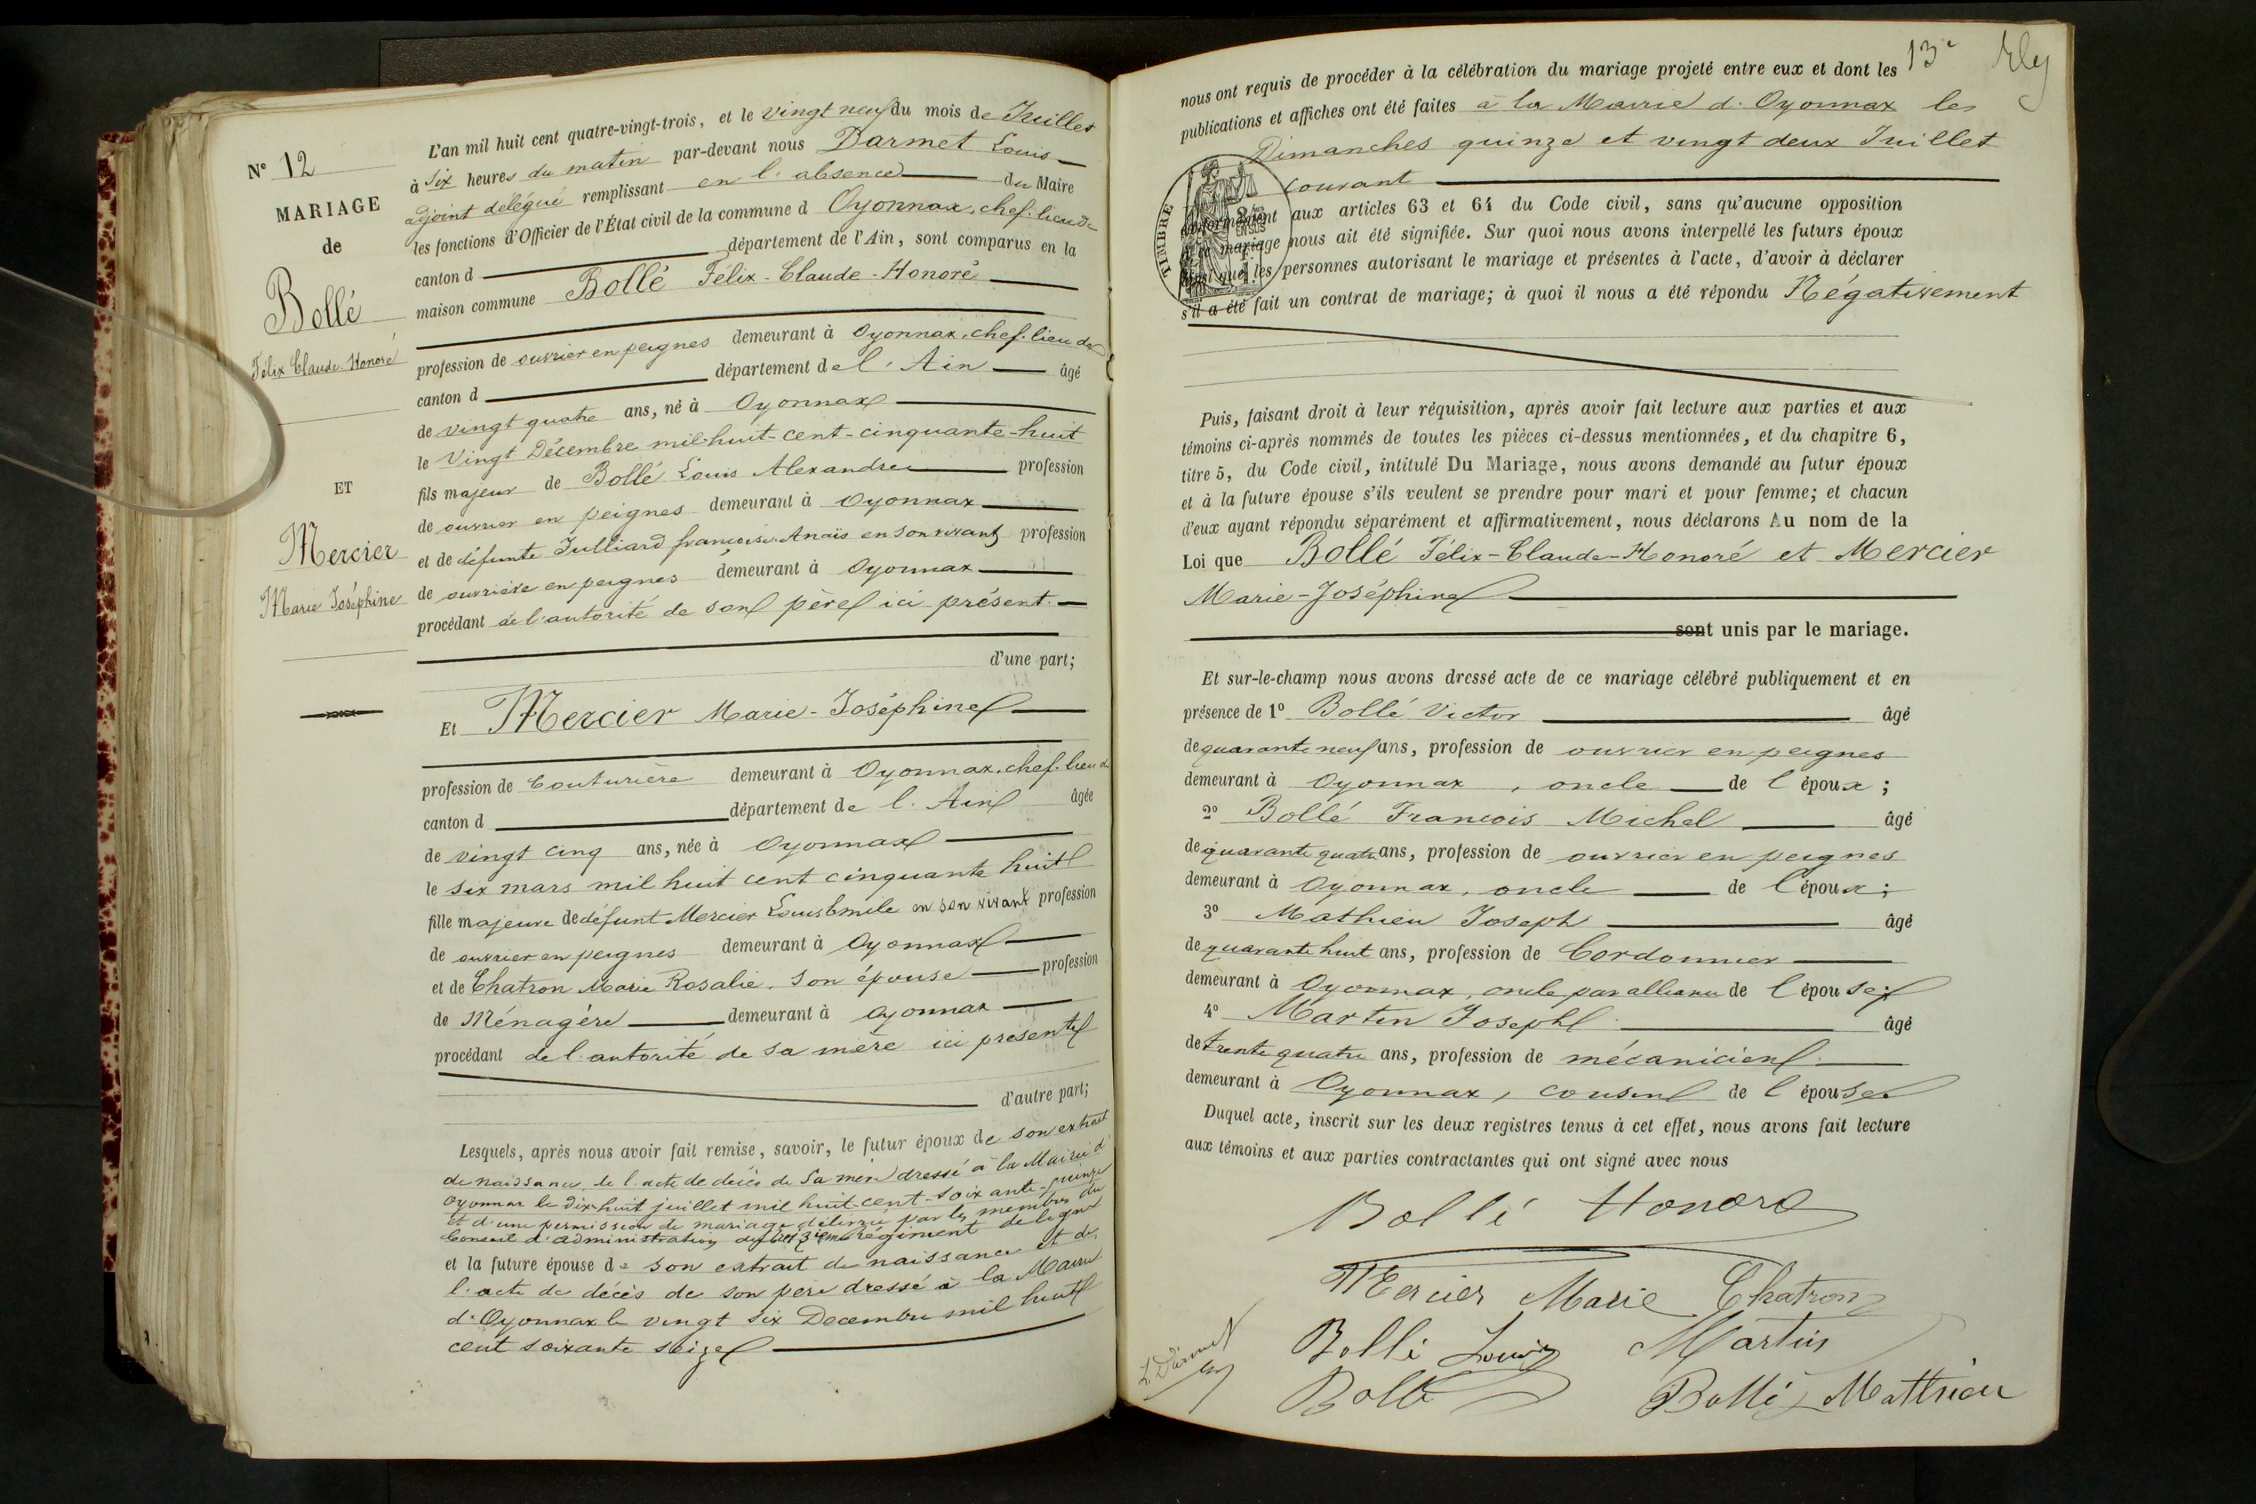 N° 12
MARIAGE
de
Bollé
Félix Claude Honoré
ET
Mercier
Marie Joséphine
L'an mil huit cent quatre-vingt-trois, et le vingt neuf du mois de Juillet
à six heures du matin par-devant nous Darmet Louis
adjoint délégué remplissant en l'absence du Maire
les fonctions d'Officier de l'État civil de la commune d Oyonnax, chef-lieu de
canton d département de l'Ain, sont comparus en la
maison commune Bollé Félix-Claude-Honoré
profession de ouvrier en peignes demeurant à Oyonnax, chef-lieu de
canton d département de l'Ain âgé
de vingt quatre ans, né à Oyonnax
le Vingt Décembre mil-huit-cent-cinquante-huit
fils majeur de Bollé Louis Alexandre profession
de ouvrier en peignes demeurant à Oyonnax
et de défunte Julliard françoise Anaïs en son vivant profession
de ouvrière en peignes demeurant à Oyonnax
procédant de l'autorité de son père ici présent
d'une part;
Et Mercier Marie-Joséphine
profession de Couturière demeurant à Oyonnax, chef-lieu de
canton d département de l'Ain âgée
de vingt cinq ans, née à Oyonnax
le six mars mil huit cent cinquante huit
fille majeure de défunt Mercier Louis Emile en son vivant profession
de ouvrier en peignes demeurant à Oyonnax
et de Chatron Marie Rosalie, son épouse profession
de Ménagère demeurant à Oyonnax
procédant de l'autorité de sa mère ici présente
d'autre part;
Lesquels, après nous avoir fait remise, savoir, le futur époux de son extrait
de naissance, de l'acte de décès de sa mère dressé à la Mairie d'
Oyonnax le dix-huit juillet mil huit-cent-soixante-quinze
et d'une permission de mariage délivrée par les membres du
Conseil d'administration du régiment de ligne
et la future épouse de son extrait de naissance et de
l'acte de décès de son père dressé à la Mairie
d'Oyonnax le vingt six Decembre mil huit
cent soixante seize
13e Rly
nous ont requis de procéder à la célébration du mariage projeté entre eux et dont les
publications et affiches ont été faites à la Mairie d'Oyonnax les
Dimanches quinze et vingt deux Juillet
courant
TIMBRE
conformément aux articles 63 et 64 du Code civil, sans qu'aucune opposition
mariage nous ait été signifiée. Sur quoi nous avons interpellé les futurs époux
ainsi que les personnes autorisant le mariage et présentes à l'acte, d'avoir à déclarer
s'il a été fait un contrat de mariage; à quoi il nous a été répondu Négativement
Puis, faisant droit à leur réquisition, après avoir fait lecture aux parties et aux
témoins ci-après nommés de toutes les pièces ci-dessus mentionnées, et du chapitre 6,
titre 5, du Code civil, intitulé Du Mariage, nous avons demandé au futur époux
et à la future épouse s'ils veulent se prendre pour mari et pour femme; et chacun
d'eux ayant répondu séparément et affirmativement, nous déclarons Au nom de la
Loi que Bollé Félix-Claude-Honoré et Mercier
Marie-Joséphine
sont unis par le mariage.
Et sur-le-champ nous avons dressé acte de ce mariage célébré publiquement et en
présence de 1° Bollé Victor âgé
de quarante neuf ans, profession de ouvrier en peignes
demeurant à Oyonnax, oncle de l époux;
2° Bollé François Michel âgé
de quarante quatre ans, profession de ouvrier en peignes
demeurant à Oyonnax, oncle de l'époux;
3° Mathieu Joseph âgé
de quarante huit ans, profession de Cordonnier
demeurant à Oyonnax, oncle par alliance de l épouse;
4° Martin Joseph âgé
de trente quatre ans, profession de mécanicien
demeurant à Oyonnax, cousin de l épouse
Duquel acte, inscrit sur les deux registres tenus à cet effet, nous avons fait lecture
aux témoins et aux parties contractantes qui ont signé avec nous
Bollé Honoré
Mercier Marie Chatron
L Darmet Bollé Louis Martin
Bollé Bollé Mathieu